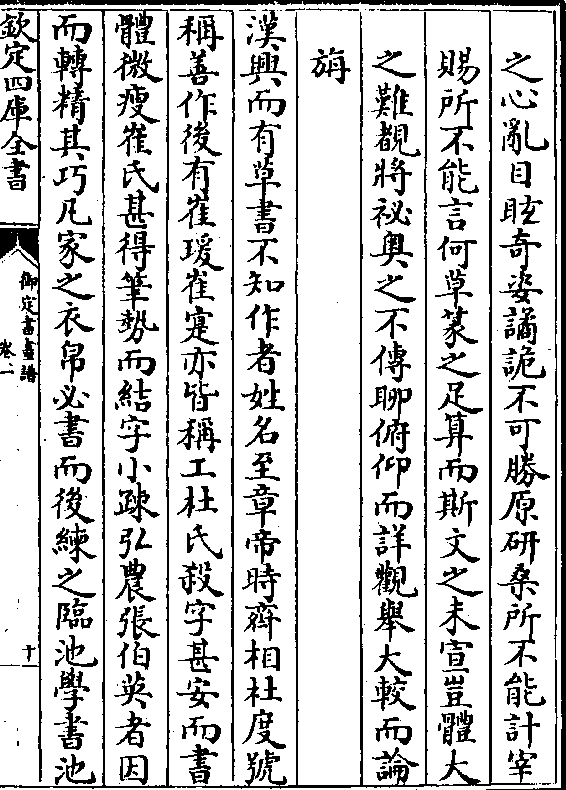 之心亂目眩奇姿譎詭不可勝原研桑所不能計宰
賜所不能言何草篆之足算而斯文之未宣豈體大
之難覩將祕奧之不傳聊俯仰而詳觀舉大較而論
旃
漢興而有草書不知作者姓名至章帝時齊相杜度號
稱善作後有崔瑗崔寔亦皆稱工杜氏殺字甚安而書
體微瘦崔氏甚得筆勢而結字小踈弘農張伯英者因
而轉精其巧凡家之衣帛必書而後練之臨池學書池
欽定四庫全書
御定書畫譜
卷一
十一